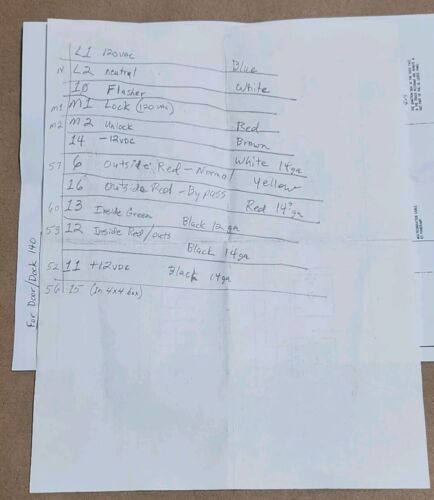 L1 120vac
N L2 neutral Blue
10 Flasher White
M1 M1 Lock (120vac)
M2 M2 Unlock Red
14 -12VDC Brown
57 6 Outside Red - Normal White 14ga
16 Outside Red - Bypass Yellow
60 13 Inside Green Red 14ga
53 12 Inside Red/outs Black 12ga
Black 14ga
52 11 +12VDC Black 14ga
56 15 (In 4x4 box)
For Door/Dock 140